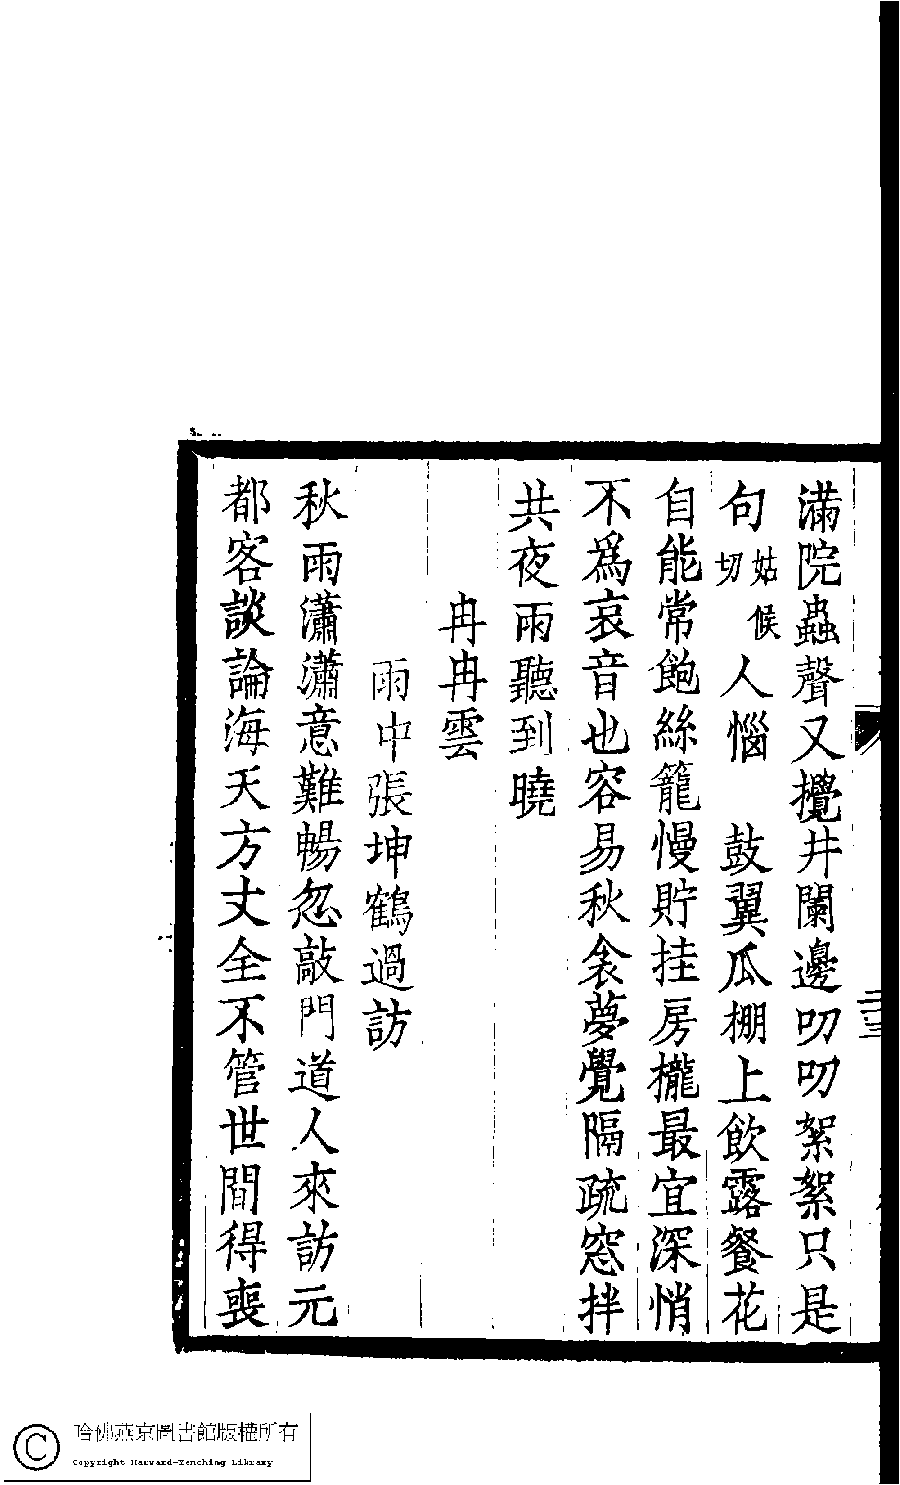 滿院蟲聲又攪井闌邊叨叨絮絮只是
句姑候切人惱　鼓翼瓜棚上飲露餐花
自能常飽絲籠慢貯挂房櫳最宜深悄
不爲哀音也容易秋衾夢覺隔疏窓拌
共夜雨聽到曉
冉冉雲
雨中張坤鶴過訪
秋雨瀟瀟意難暢忽敲門道人來訪元
都客談論海天方丈全不管世間得喪
二三
哈佛燕京圖書館版權所有
Copyright Harvard-Yenching Library